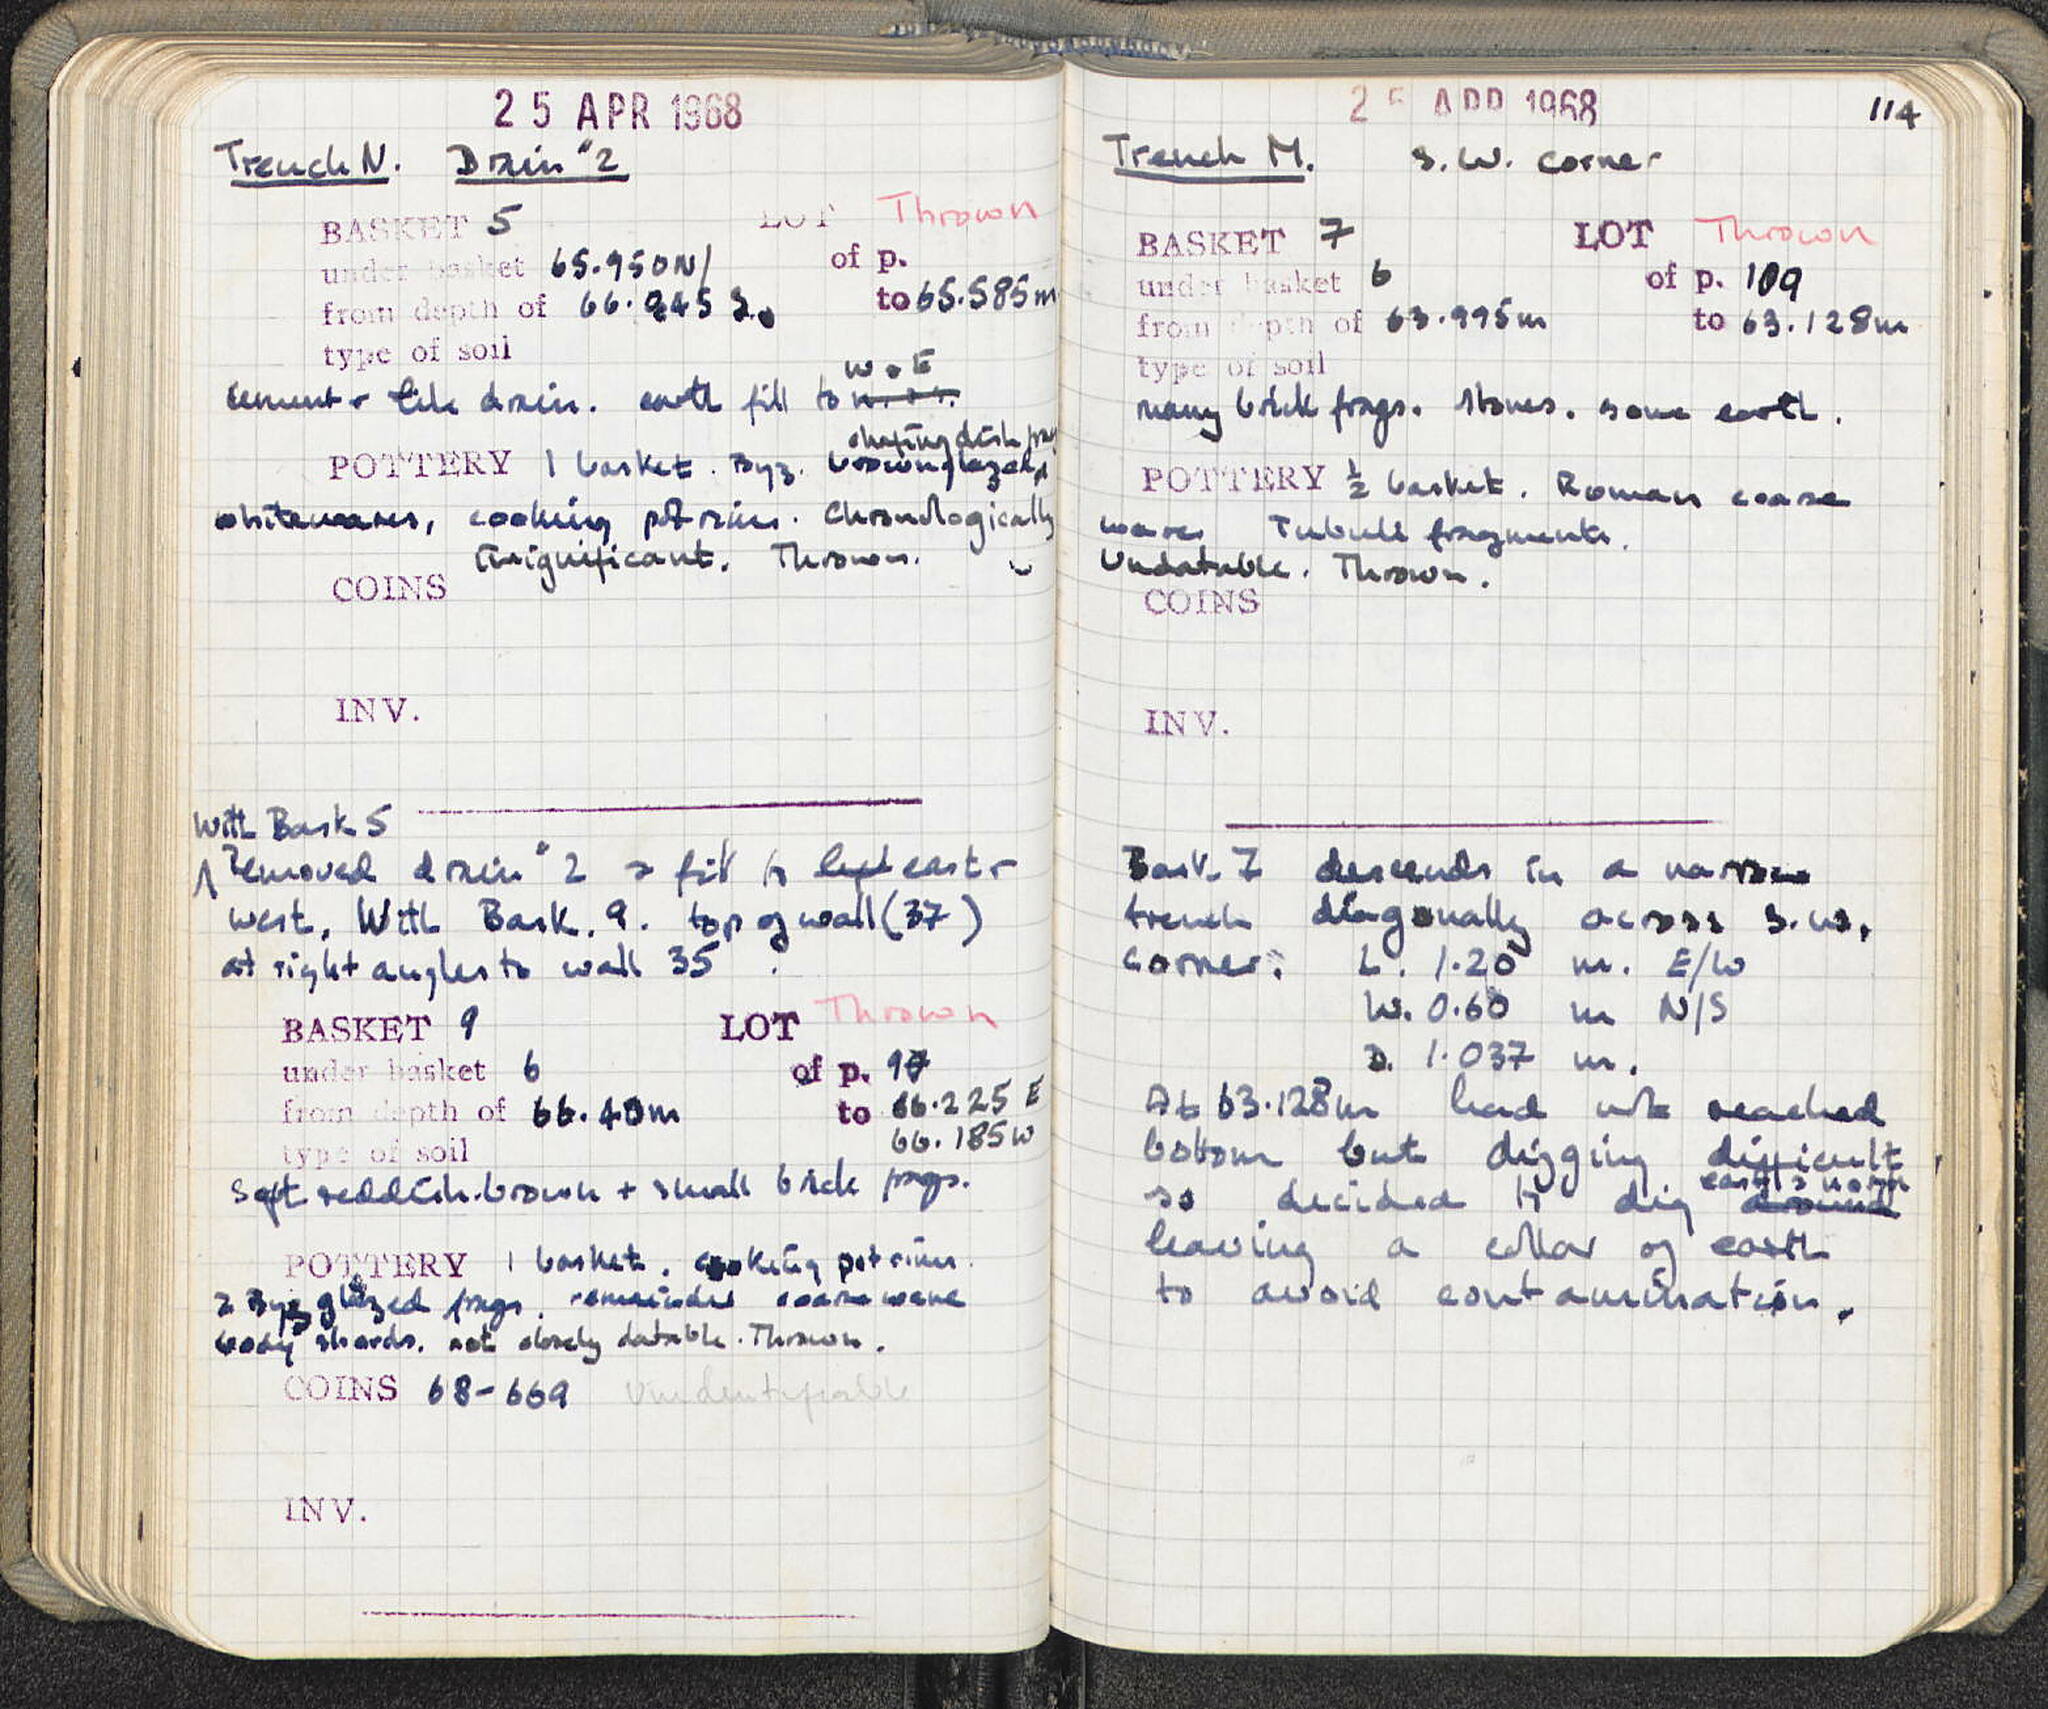 25 APR 1968
Trench N. Drain "2
BASKET 5 LOT Thrown
under basket 65.950N/ of p.
from depth of 66.245 S. to 65.585m
type of soil
W + E
cement + tile drain. earth fill to
chafing dish frag
POTTERY 1 basket. Byz. brown glazed,
whitewares, cooking pot rims. Chronologically
insignificant. Thrown.
COINS
INV.
With Bask 5
Removed drain "2 + fill to left east +
west. With Bask. 9. top of wall (37)
at right angles to wall 35.
BASKET 9 LOT Thrown
under basket 6 of p. 97
from depth of 66.40m to 66.225 E
66.185W
type of soil
Soft reddish-brown + small brick frags.
POTTERY 1 basket. cooking pot rims.
2 Byz glazed frags. remainder coarse ware
body sherds. not closely datable. Thrown.
COINS 68-669 Unidentifiable
INV.
25 APR 1968 114
Trench M. S.W. corner
BASKET 7 LOT Thrown
under basket 6 of p. 109
from depth of 63.995m to 63.128m
type of soil
many brick frags. stones. some earth.
POTTERY ½ basket. Roman coarse
wares Tubuli fragments.
Undatable. Thrown.
COINS
INV.
Bask. 7 descends in a narrow
trench diagonally across S.W.
corner: L. 1.20 m. E/W
W. 0.60 m N/S
D. 1.037 m.
At 63.128m had not reached
bottom but digging difficult
east + north
so decided to dig around
leaving a collar of earth
to avoid contamination.